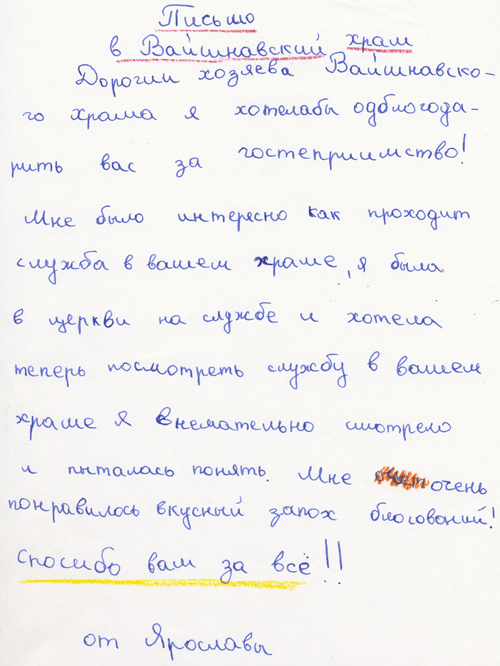 Письмо
в Вайшнавский храм
Дорогии хозяева Вайшнавско-
го храма я хотелабы одблогода-
рить вас за гостеприимство!
Мне было интересно как проходит
служба в вашем храме, я была
в церкви на службе и хотела
теперь посмотреть службу в вашем
храме я внемательно смотрело
и пыталась понять. Мне очень
понравилось вкусный запох блогований!
спосибо вам за всё!!
от Ярославы